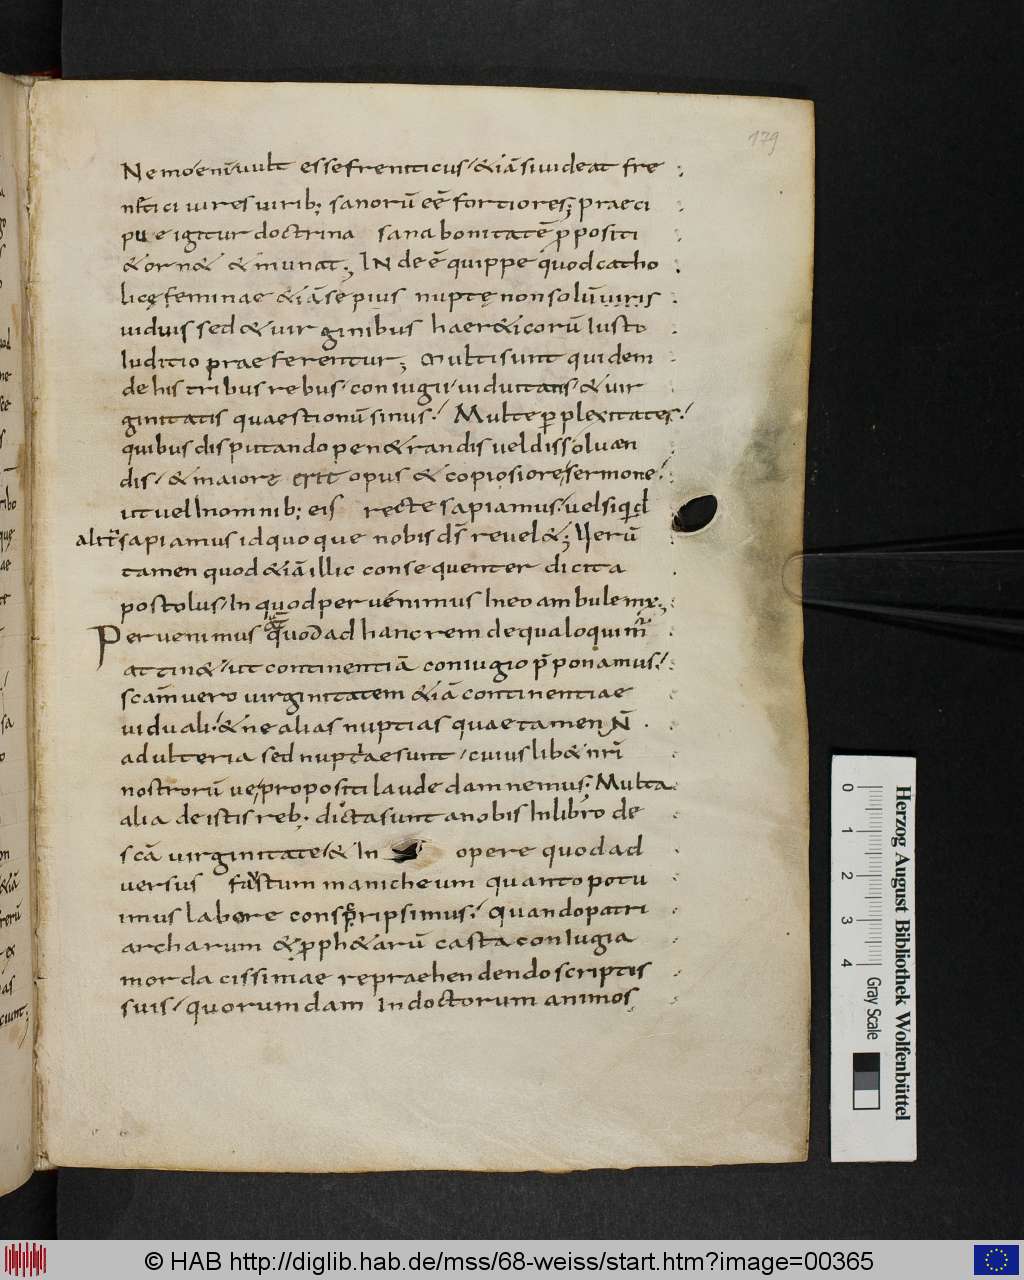 179
Nemo eni͂ uult esse freniticus / & iā si uideat fre
niticı uires uirib; sanorū eē fortiores; praeci
pue igitur doctrina sana bonitatē ꝓpositi
& orn& & munat; INde ē quippe quod catho
licę feminae & iā sępius nuptę non solū uiris
uiduis sed & uirginibus haer&icorū Iusto
Iuditio praeferentur; Multi sunt quidem
de his tribus rebus / coniugii / uiduitatis / & uir
ginitatis quaestionū sinus / Multe ꝑplexitates /
quibus disputando pen&randis uel dissoluen
dis / & maiore opus & copiosiore / sermone /
ut uel In omnib; eis recte sapiamus / uel siqid
alit͂ sapiamus id quoque nobis ds̄ reuel&; Uerū
tamen quod & iā illic consequenter dicit a
postolus / In quod peruenimus In eo ambulem;
Peruenimus quod ad hanc rem de qua loquim̄
attin& / ut continentiā coniugio p̄ponamus /
scam̄ uero uirginitatem & iā continentiae
viduali / & ne alias nuptias quae tamen N̄
adulteria sed nuptiae sunt / cuiuslib& nr̄i
nostrorū ue / propositi laude damnemus; Multa
alia de istis reb; dicta sunt a nobis In libro de
scā uirginitate / & In opere quod ad
uersus faustum manicheum quanto potu
imus labore conscripsimus / quando patri
archarum & ꝓph&arū casta coniugia
mordacissimae repraehendendo scriptis
suis / quorumdam Indoctorum animos
Herzog August Bibliothek Wolfenbüttel
0 1 2 3 4 Gray Scale
© HAB http://diglib.hab.de/mss/68-weiss/start.htm?image=00365